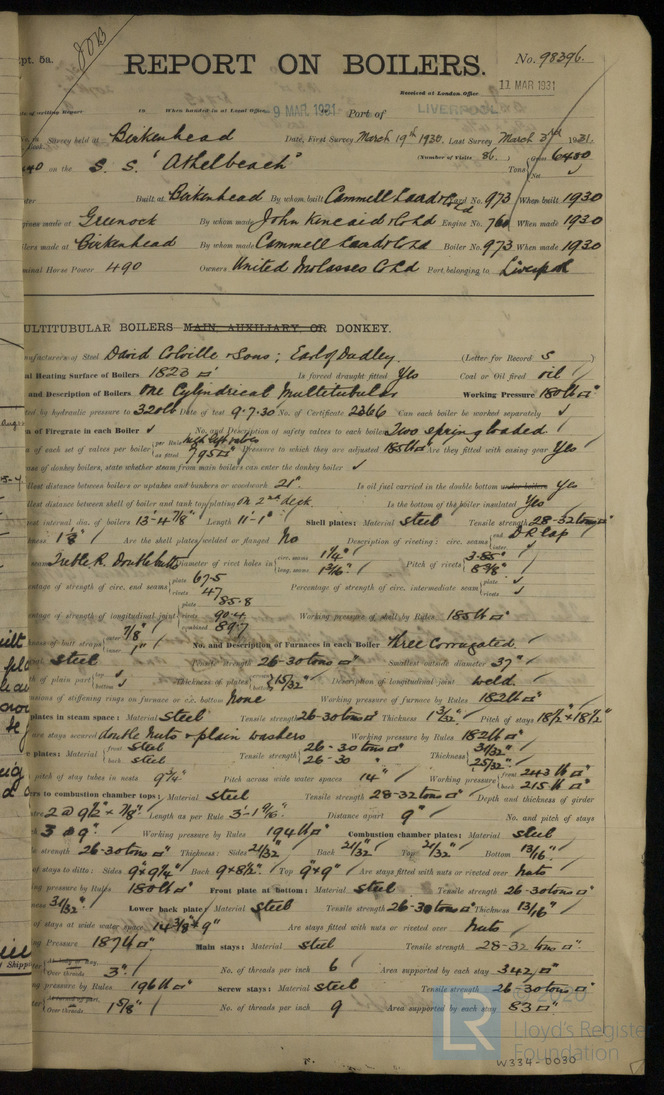 pt. 5a.
REPORT ON BOILERS.
No. 98396.
Received at London Office
11 MAR 1931
When handed in at Local Office 9 MAR. 1931 Port of LIVERPOOL
Survey held at Birkenhead Date, First Survey March 19th 1930, Last Survey March 3rd 1931
(Number of Visits 86.) Gross 6480
on the S. S. "Athelbeach" Tons
Built at Birkenhead By whom built Cammell Laird & Co Ld Yard No. 973 When built 1930
made at Greenock By whom made John Kincaid & Co Ld Engine No. When made 1930
made at Birkenhead By whom made Cammell Laird & Co Ld Boiler No. 973 When made 1930
Horse Power 490 Owners United Molasses Co Ld Port belonging to Liverpool
MULTITUBULAR BOILERS MAIN, AUXILIARY, OR DONKEY.
of Steel David Colville & Sons; Earl of Dudley. (Letter for Record S)
Heating Surface of Boilers 1823 □' Is forced draught fitted Yes Coal or Oil fired oil
and Description of Boilers One Cylindrical Multitubular Working Pressure 180 lb □"
by hydraulic pressure to 320 lb Date of test 9-7-30 No. of Certificate 2366 Can each boiler be worked separately ✓
of Firegrate in each Boiler ✓ No. and Description of safety valves to each boiler Two spring loaded
of each set of valves per boiler per Rule as fitted 7.95 □" Pressure to which they are adjusted 185 lb □" Are they fitted with easing gear Yes
of donkey boilers, state whether steam from main boilers can enter the donkey boiler ✓
distance between boilers or uptakes and bunkers or woodwork 21" Is oil fuel carried in the double bottom under boilers Yes
distance between shell of boiler and tank top plating on 2nd deck Is the bottom of the boiler insulated Yes
internal dia. of boilers 13'-4 7/8" Length 11'-1" Shell plates: Material Steel Tensile strength 28-32 tons □"
Are the shell plates welded or flanged No Description of riveting: circ. seams end D R Lap
Treble R. Double butts Diameter of rivet holes in circ. seams 1 1/4" long. seams 1 3/16" Pitch of rivets 3.85" 8 3/8"
of strength of circ. end seams plate 67.5 rivets 47 Percentage of strength of circ. intermediate seam plate rivets ✓
of strength of longitudinal joint plate 85.8 rivets 90.4 combined 89.7 Working pressure of shell by Rules 185 lb □"
of butt straps outer 7/8" inner 1" No. and Description of Furnaces in each Boiler Three Corrugated
Steel Tensile strength 26-30 tons □" Smallest outside diameter 37"
of plain part top bottom ✓ Thickness of plates 15/32" Description of longitudinal joint weld.
of stiffening rings on furnace or c.c. bottom None Working pressure of furnace by Rules 182 lb □"
plates in steam space: Material Steel Tensile strength 26-30 tons □" Thickness 1 3/32" Pitch of stays 18 1/2" × 18 1/2"
are stays secured double nuts & plain washers Working pressure by Rules 182 lb □"
plates: Material front Steel back steel Tensile strength 26-30 tons □" 26-30 " Thickness 31/32" 25/32"
pitch of stay tubes in nests 9 3/4" Pitch across wide water spaces 14" Working pressure front 243 lb □" back 215 lb □"
to combustion chamber tops: Material steel Tensile strength 28-32 tons □" Depth and thickness of girder
2 @ 9 1/2" × 7/8" Length as per Rule 3'-1 9/16" Distance apart 9" No. and pitch of stays
3 @ 9" Working pressure by Rules 194 lb □" Combustion chamber plates: Material steel
strength 26-30 tons □" Thickness: Sides 21/32" Back 21/32" Top 21/32" Bottom 13/16"
of stays to ditto: Sides 9" × 9 1/4" Back 9 × 8 1/2" Top 9" × 9" Are stays fitted with nuts or riveted over Nuts
pressure by Rules 180 lb □" Front plate at bottom: Material Steel Tensile strength 26-30 tons □"
31/32" Lower back plate: Material Steel Tensile strength 26-30 tons □" Thickness 13/16"
of stays at wide water space 14 3/8 × 9" Are stays fitted with nuts or riveted over Nuts
Pressure 187 lb □" Main stays: Material steel Tensile strength 28-32 tons □"
Over threads 3" No. of threads per inch 6 Area supported by each stay 342 □"
pressure by Rules 196 lb □" Screw stays: Material Steel Tensile strength 26-30 tons □"
Over threads 1 5/8" No. of threads per inch 9 Area supported by each stay 83 □"
LR © 2020
Lloyd's Register
Foundation
W334-0030